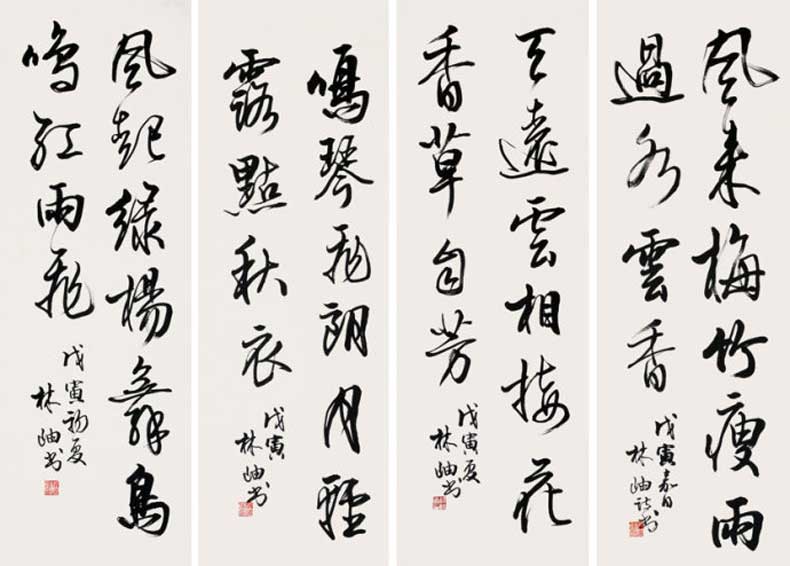 風来梅竹瘦雨
過水雲香
戊寅嘉日
林岫詩书
天遠雲相接花
香草自芳
戊寅夏
林岫书
鳴琴飛朗月輕
露點秋衣
戊寅
林岫书
風起緑楊舞鳥
鳴紅雨飛
戊寅初夏
林岫书